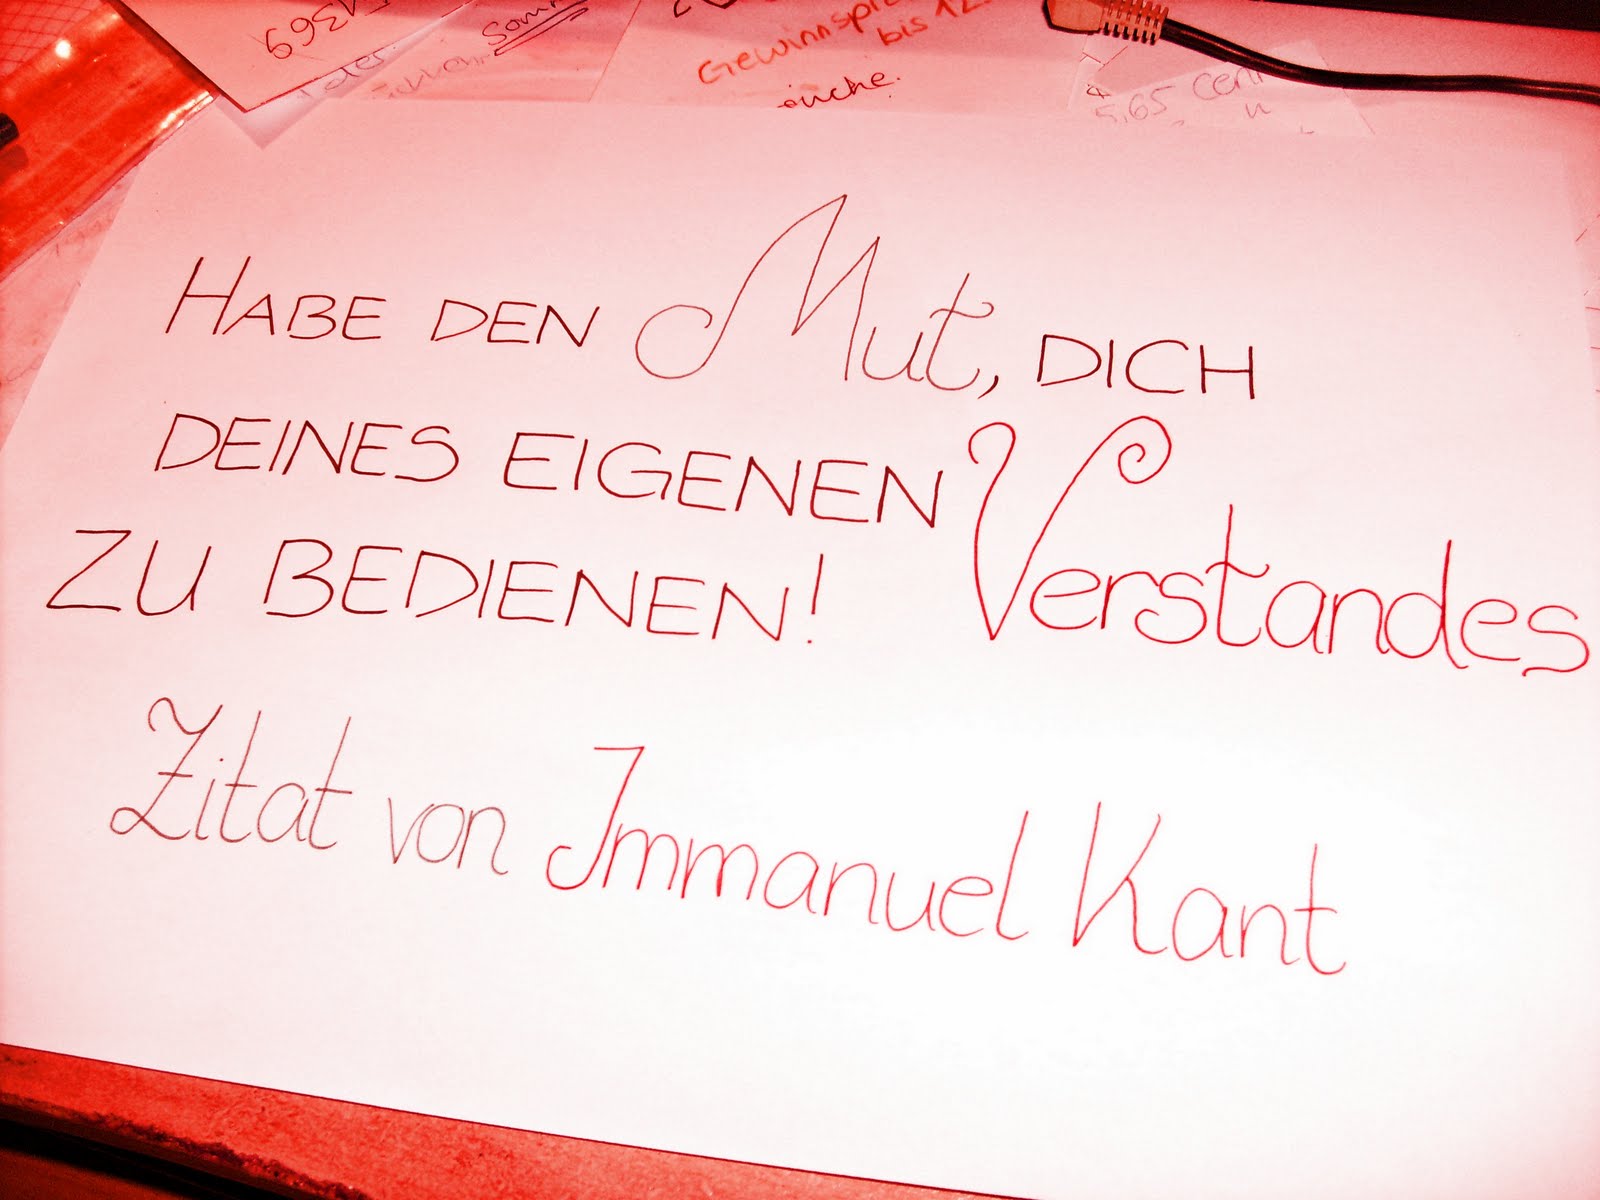 Gewinnspiel
bis 12.
5,65 Cent
HABE DEN Mut, DICH
DEINES EIGENEN Verstandes
ZU BEDIENEN!
Zitat von Immanuel Kant